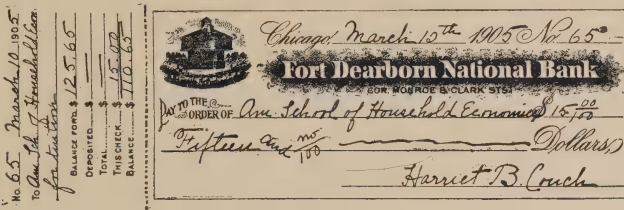 No. 65 March 10, 1905
TO Am. Sch. of Household Econ.
for tuition
BALANCE FOR'D. $ 125.65
DEPOSITED $
TOTAL $
THIS CHECK $ 15.00
BALANCE $ 110.65
Chicago, March 10th 1905 No. 65
Fort Dearborn National Bank
COR. MONROE & CLARK STS.
PAY TO THE ORDER OF Am. School of Household Economics $ 15 00/100
Fifteen and no/100 Dollars
Harriet B. Couch